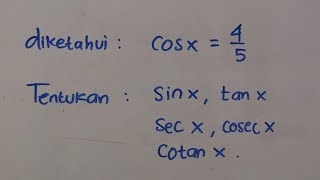 diketahui : cos x = 4/5
Tentukan : sin x, tan x
sec x, cosec x
cotan x.